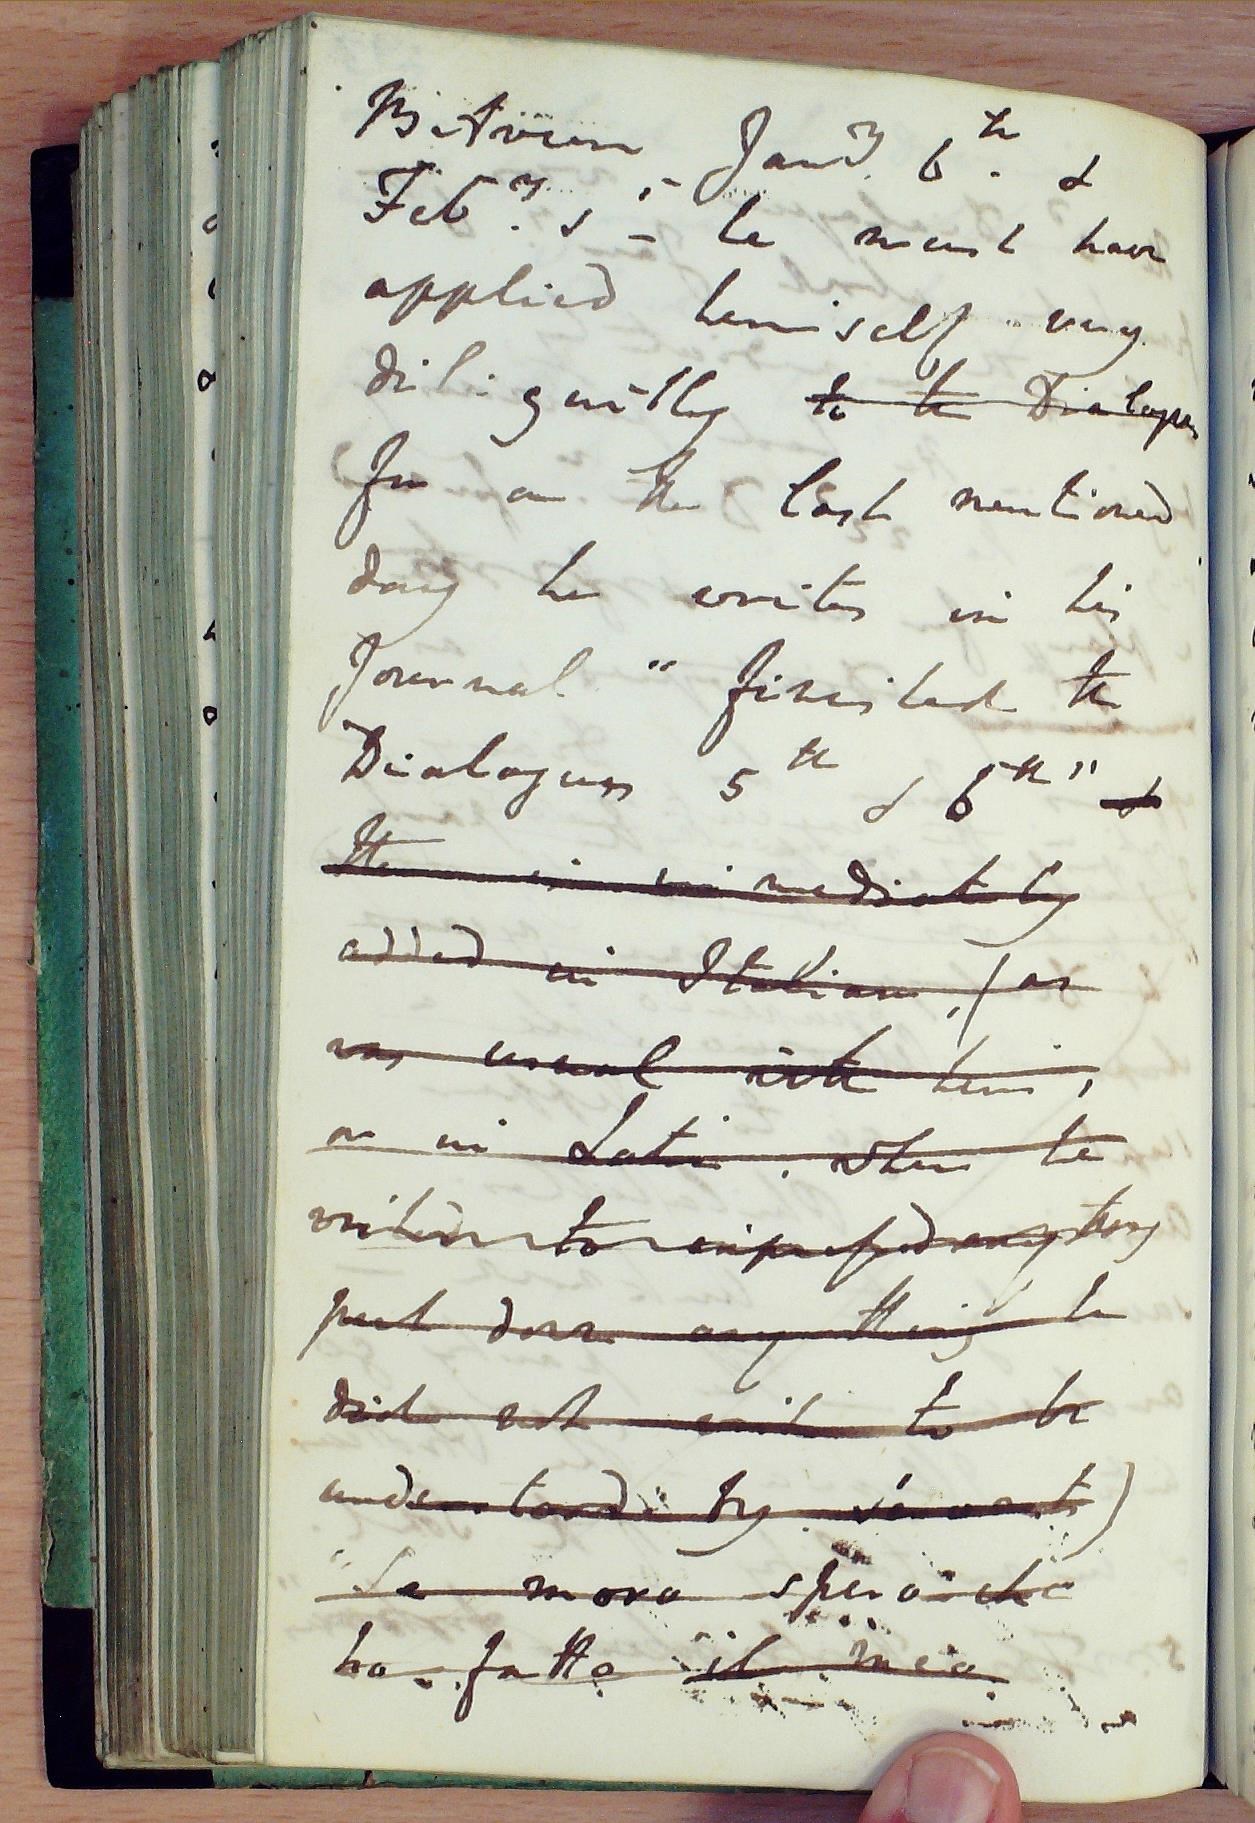 Between Jan.y 6th. &
Feb.y 5 - he must have
applied himself very
diligently to the Dialogues
for on the last mentioned
day he writes in his
Journal "Finished the
Dialogues 5th & 6th" &
then immediately
added in Italian, (as
was usual with him,
or in Latin. when he
wished to any thing
put down any thing he
did not wish to be
understood by servants)
"Se moro spero che
ho fatto il mio